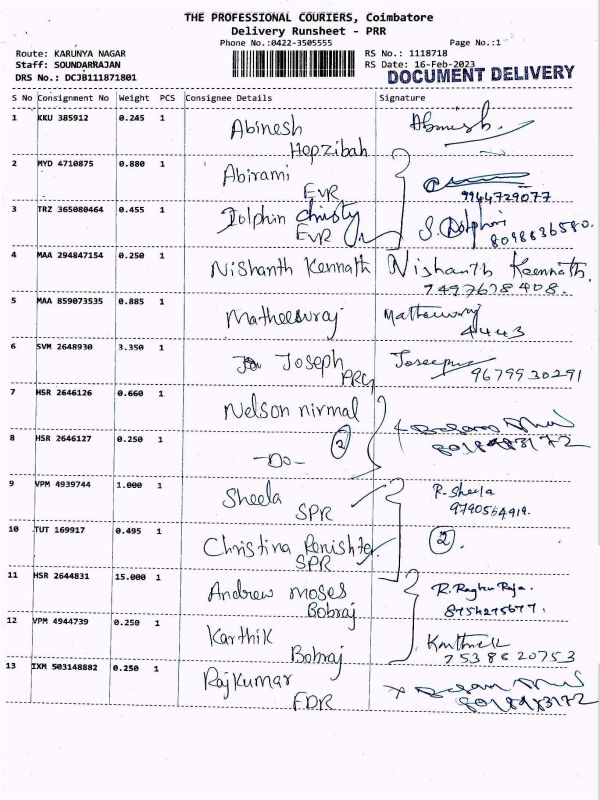 THE PROFESSIONAL COURIERS, Coimbatore
Delivery Runsheet - PRR
Phone No.:0422-3505555 Page No.:1
Route: KARUNYA NAGAR RS No.: 1118718
Staff: SOUNDARRAJAN RS Date: 16-Feb-2023
DRS No.: DCJB111871801 DOCUMENT DELIVERY
S No Consignment No Weight PCS Consignee Details Signature
1 KKU 385912 0.245 1 Abinesh
Hepzibah
2 MYD 4710875 0.880 1 Abirami
EVR 9944729077
3 TRZ 365080464 0.455 1 Dolphin Christy S. Dolphini
EVR 8098836580.
4 MAA 294847154 0.250 1 Nishanth Kennath Nishanth Keennath.
7497678408.
5 MAA 859073535 0.885 1
4443
6 SVM 2648930 3.350 1 Joseph
PRG 9679930291
7 HSR 2646126 0.660 1 Nelson nirmal
8 HSR 2646127 0.250 1 2
-Do-
9 VPM 4939744 1.000 1 Sheela R. Sheela
SPR 9790564919.
10 TUT 169917 0.495 1 Christina Renishte 2.
SPR
11 HSR 2644831 15.000 1 Andrew moses R. Raghu Raja.
Bobraj 8754275677.
12 VPM 4944739 0.250 1 Karthik Karthick
Bobraj 7538620753
13 IXM 503148882 0.250 1 Rajkumar
FDR